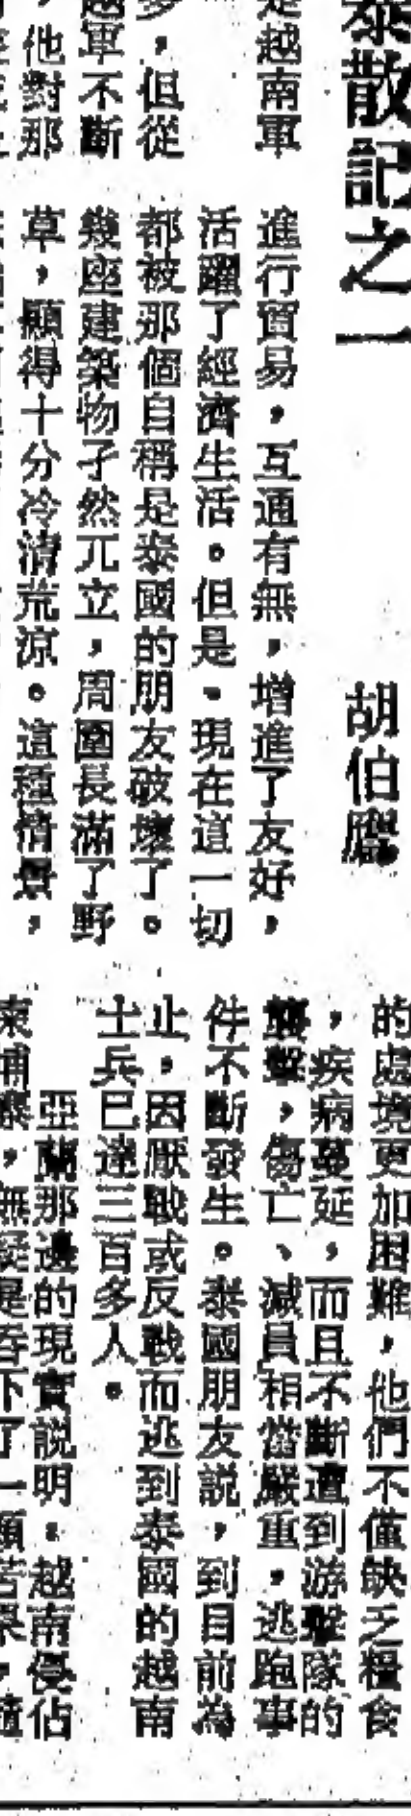 泰散記之一
胡伯
是越南軍
多，但從
越軍不斷
，他對那
進行貿易，互通有無，增進了友好，
活躍了經濟生活。但是，現在這一切
都被那個自稱是泰國的朋友破壞了。
幾座建築物孑然兀立，周圍長滿了野
草，顯得十分冷清荒涼。這種情景，
的處境更加困難，他們不僅缺乏糧食
，疾病蔓延，而且不斷遭到游擊隊的
襲擊，傷亡、減員相當嚴重，逃跑事
件不斷發生。泰國朋友説，到目前為
止，因厭戰或反戰而逃到泰國的越南
士兵已達三百多人。
亞蘭那邊的現實説明，越南侵佔
柬埔寨，無疑是吞下了一顆苦果，隨